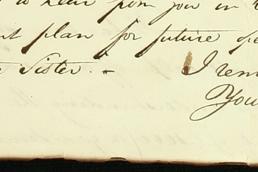 to hear from you in
plan for future
Sister. - I rem
You